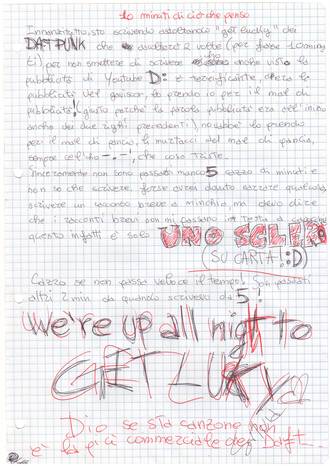 10 minuti di ciò che penso
Innanzitutto, sto scrivendo ascoltando "get lucky" dei
DAFT PUNK che ascolterò 2 volte (per forse 10 minu
ti), per non smettere di scrivere ho visto la
pubblicità di Youtube D: è terrificante, cerca la
pubblicità del gaviscon, lo prendo io per il mal di
pubblicità! (giusto perchè la parola pubblicità era all'inizio
anche dei due righi precedenti), no vabbè lo prendo
per il mal di pancia, li mortacci del mal di pancia,
sempre ce l'ho -.-, che cosa triste.
Sinceramente non sono passati manco 5 cazzo di minuti e
non so che scrivere, forse avrei dovuto cazzare qualcosa
scrivere un racconto breve a minchia, ma devo dire
che i racconti brevi non mi passano in testa a
questo infatti è solo UNO SCLERO
SU CARTA! :D)
Cazzo se non passa veloce il tempo! Son passati
altri 2 min da quando scrivevo da 5!
We're up all night to
GET LUKY
Dio se sta canzone non
è la più commerciale dei Daft...